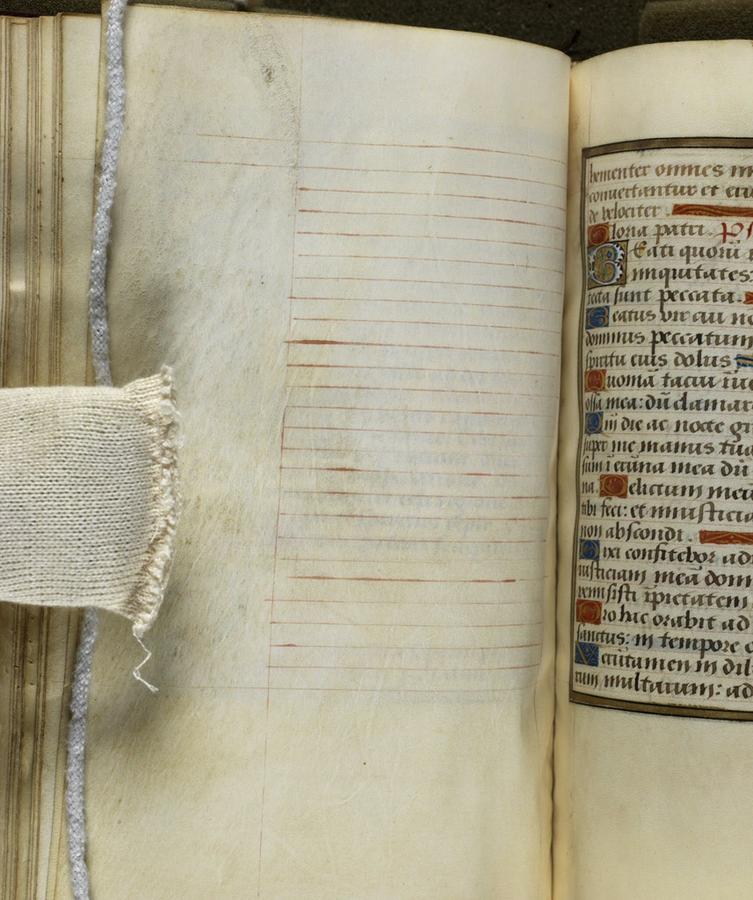 hementer omnes in
convertantur et eru
de velociter.
Gloria patri. Ps
Beati quorū r
iniquitates:
tecta sunt peccata.
Beatus vir cui no
dominus peccatum
spiritu eius dolus
Quoniā tacui inv
ossa mea: dū clamare
Qm die ac nocte gr
super me manus tua
sum ī erūna mea dū
na. Delictum meu
tibi feci: et iniusticia
non abscondi.
Dixi confitebor adv
iusticiam meā domi
remisisti īpietatem
Pro hac orabit ad
sanctus: in tempore o
Verūtamen in dil
vium multarum: ad